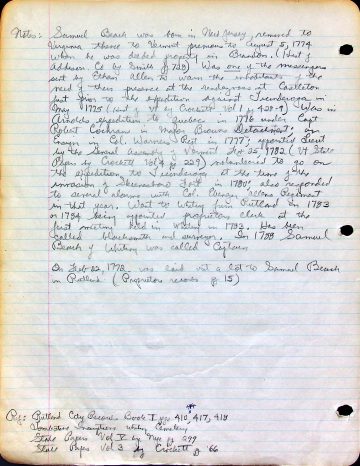 Notes: Samuel Beach was born in New Jersey, removed to
Virginia thence to Vermont previous to August 5, 1774
when he was deeded property in Brandon. (Hist of
Addison Co by Smith p 728) Was one of the messengers
sent by Ethan Allen to warn the inhabitants of the
need of their presence at the rendezvous at Castleton
just prior to the expedition against Ticonderoga in
May 1775 (Hist of Vt Crockett Vol 1, p 439-) Was in
Arnolds expedition to Quebec in 1776 under Capt
Robert Cochran in Major Browns Detachment, an
Ensign in Col. Warner's Reg't in 1777; appointed Lieut
by the General Assembly of Vermont Feb 25, 1782 (Vt State
Papers by Crockett Vol 4 p 229) volunteered to go on
the expedition to Ticonderoga at the time of the
invasion of Skenesboro Fort in 1780, also responded
to several alarms with Col. Ebenezer Allens Regiment
in that year. Went to Whiting from Rutland in 1783
or 1784 being appointed proprietors clerk at the
first meeting held in Whiting in 1783. Has been
called blacksmith and surveyor. In 1788 Samuel
Beach of Whiting was called Captain
On Feb 22, 1773, was laid out a lot to Samuel Beach
in Rutland (Proprietors records p. 15)
Ref: Rutland City Records Book I pp 410, 417, 418
Tombstone Inscriptions Whiting Cemetery
State Papers Vol V by Nye pg 299
State Papers Vol 3 by Crockett p 66